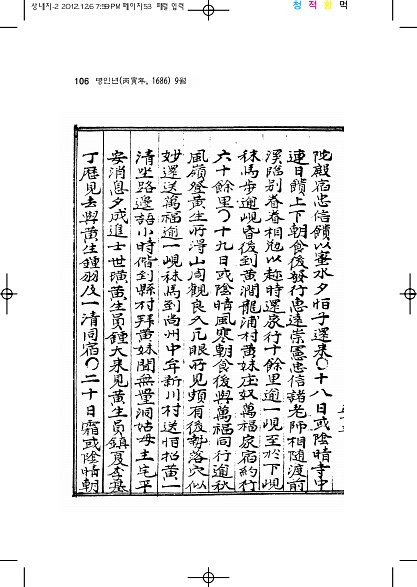 상내지-2 2012.12.6 7:59 PM 페이지53 패럴 입력
청 적 황 먹
106 병인년(丙寅年, 1686) 9월
陀殿宿忠信饋以蜜水夕怕子還來〇十八日或陰晴寺中
連日饋上下朝食後發行忠遠崇憲忠信諸老師相隨渡前
溪臨別眷眷相勉以趁時還家行十余里逾一峴至於下峴
秣馬步逾峴昏後到黃澗龍浦村黃妹庄奴萬福家宿約行
六十餘里〇十九日或陰晴風寒朝食後與萬福同行逾秋
風嶺登黃生所得山周觀良久凡眼所見頗有後勢落穴似
妙還送萬福逾一峴秣馬到尙州中牟新川村送怕招黃一
清坐路邊語小時偕到縣村拜黃妹聞無量洞姑母主宅平
安消息夕成進士世璜黃生員鍾大來見黃生員鎭夏李墓
丁歷見去與黃生鍾羽及一清同宿〇二十日霜或陰晴朝